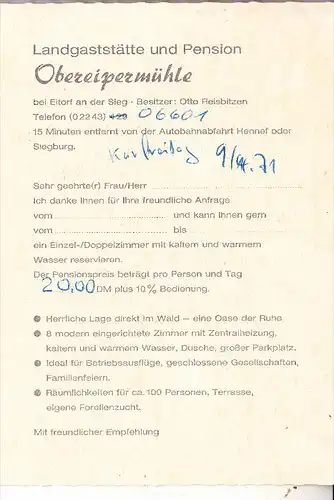 Landgaststätte und Pension
Obereipermühle
bei Eitorf an der Sieg · Besitzer: Otto Reisbitzen
Telefon (02243) 420 06601
15 Minuten entfernt von der Autobahnabfahrt Hennef oder
Siegburg.
Karfreitag 9/4.71
Sehr geehrte(r) Frau/Herr
Ich danke Ihnen für Ihre freundliche Anfrage
vom und kann Ihnen gern
vom bis
ein Einzel-/Doppelzimmer mit kaltem und warmem
Wasser reservieren.
Der Pensionspreis beträgt pro Person und Tag
20,00 DM plus 10% Bedienung.
● Herrliche Lage direkt im Wald – eine Oase der Ruhe
● 8 modern eingerichtete Zimmer mit Zentralheizung,
kaltem und warmem Wasser, Dusche, großer Parkplatz.
● Ideal für Betriebsausflüge, geschlossene Gesellschaften,
Familienfeiern.
● Räumlichkeiten für ca. 100 Personen, Terrasse,
eigene Forellenzucht.
Mit freundlicher Empfehlung